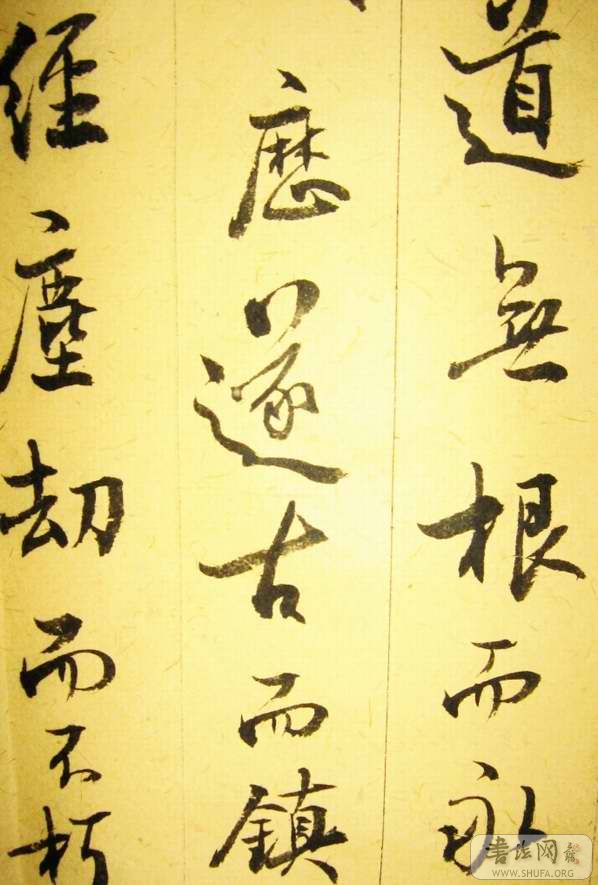 道無根而永
歷遂古而鎮
經塵劫而不朽
書法网
WWW.SHUFA.ORG